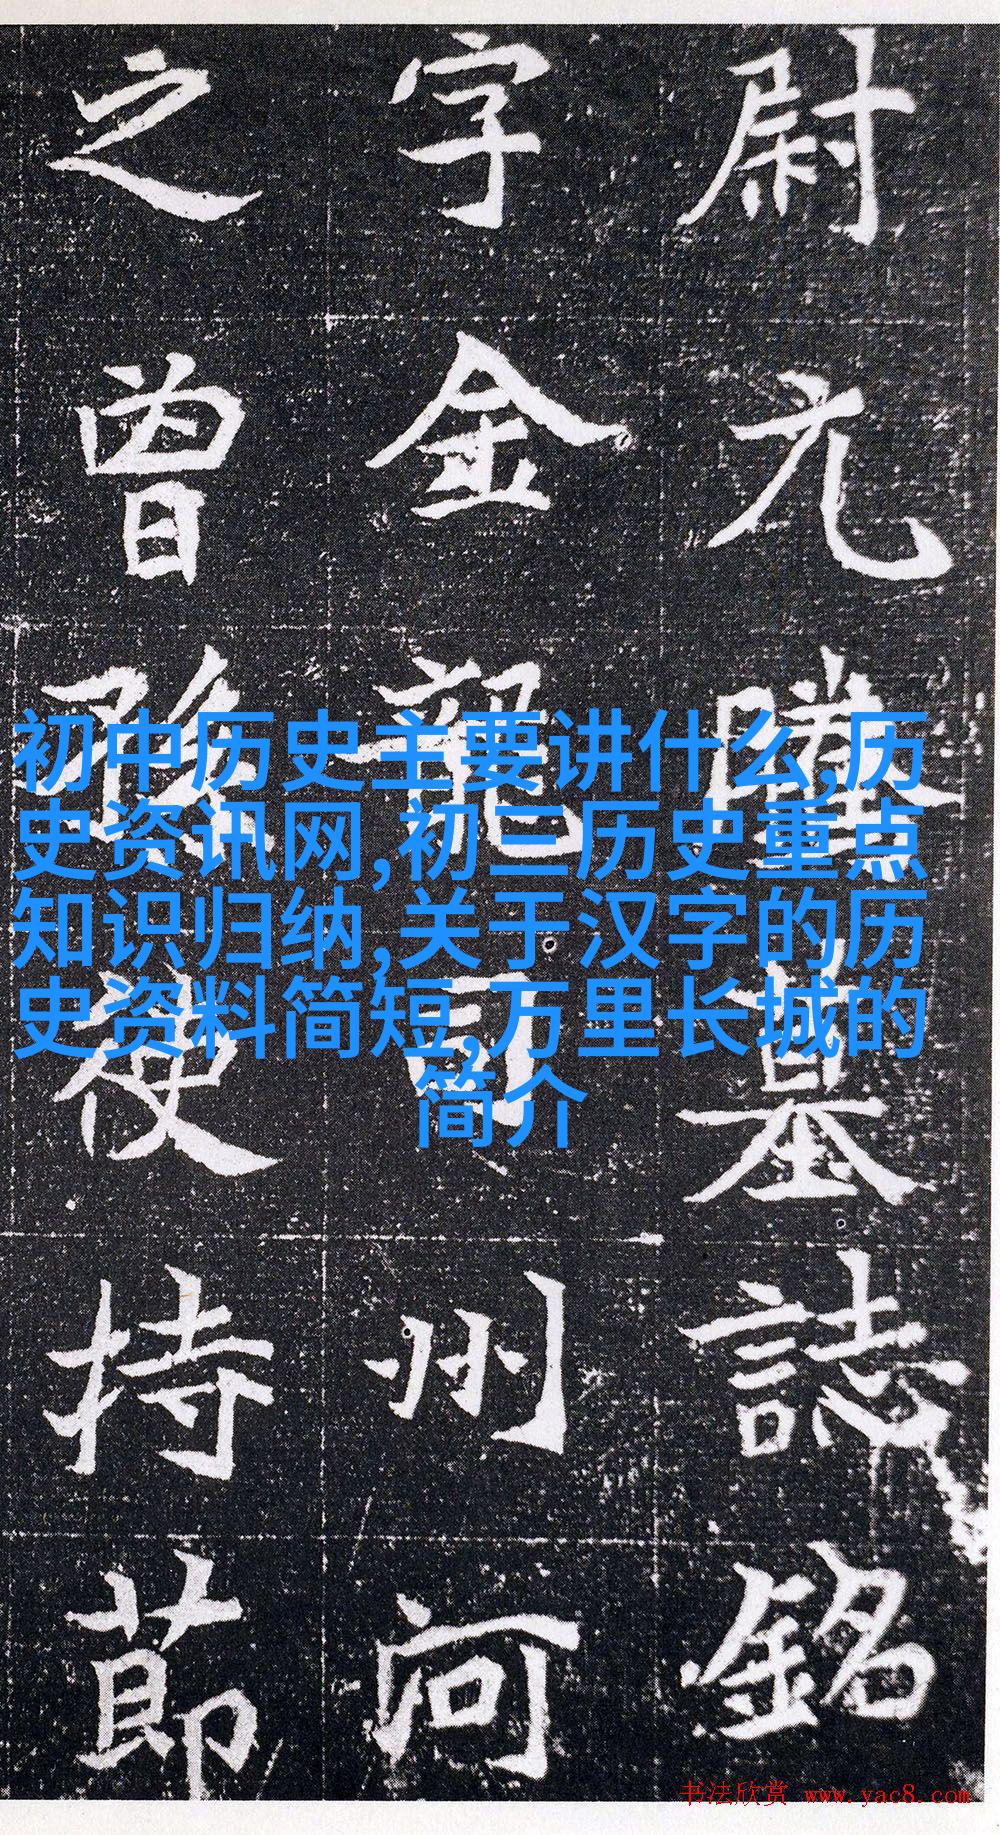 尉元墓誌銘
字金龍司州河
之曾孫使持節
初中历史主要讲什么,历
史资讯网,初三历史重点
知识归纳,关于汉字的历
史资料简短,万里长城的
简介
书法欣赏 www.yac8.com